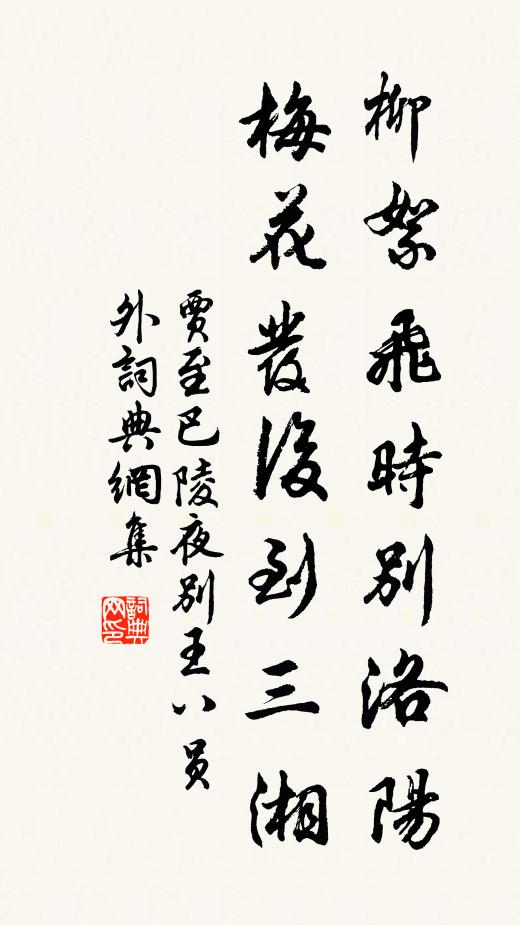 柳絮飛時別洛陽
梅花發後到三湘
賈至巴陵夜別王八員
外詞典網集
詞典
网印